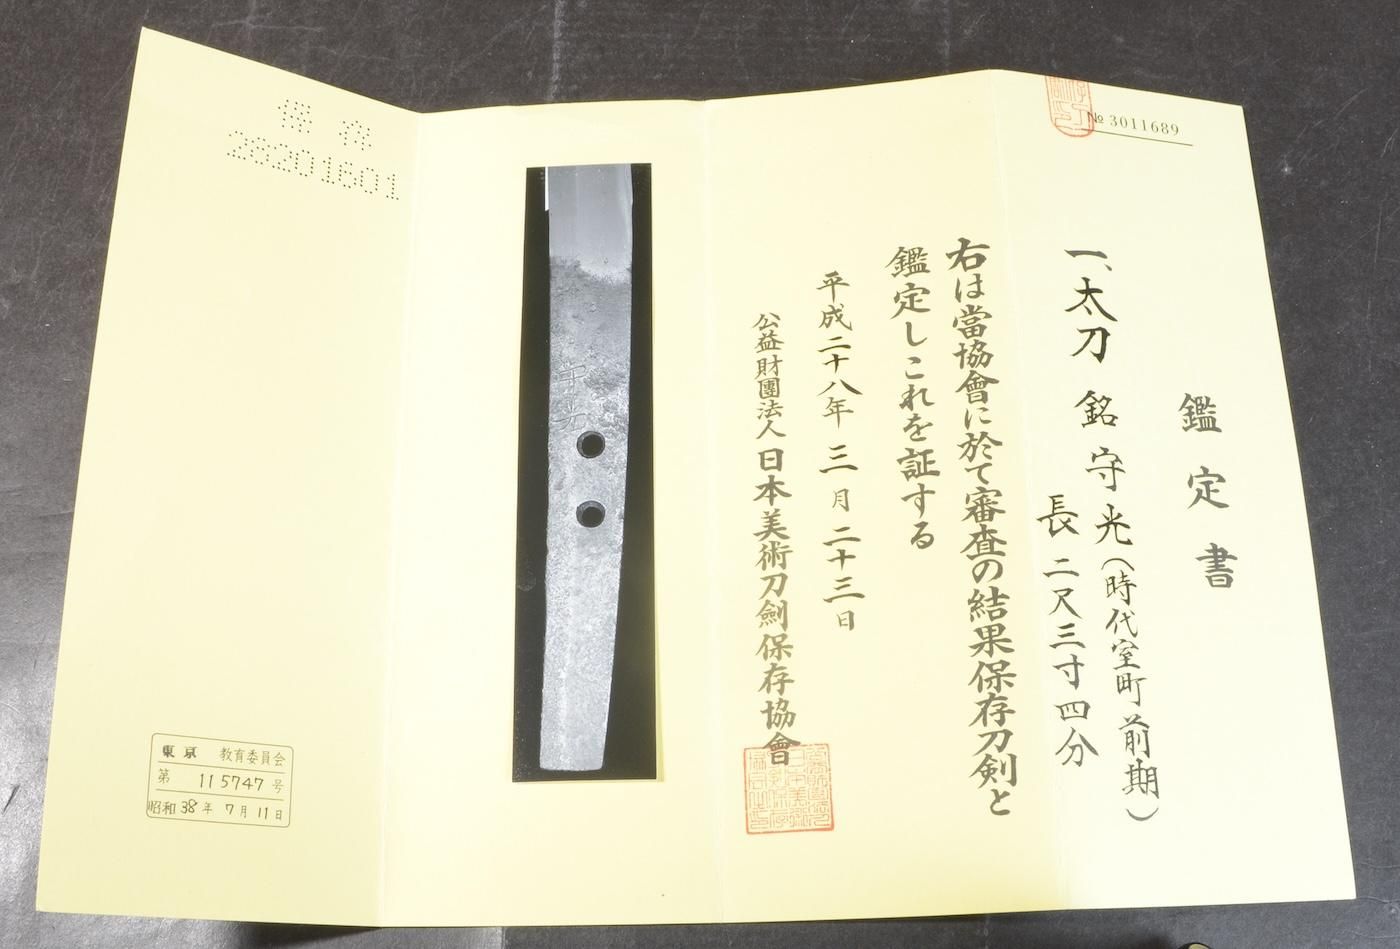 № 3011689
鑑定書
一、太刀 銘 守光(時代室町前期)
長二尺三寸四分
右は當協會に於て審査の結果保存刀剣と
鑑定しこれを証する
平成二十八年三月二十三日
公益財團法人日本美術刀劍保存協會
守光
保存
28201601
東京 教育委員会
第 115747 号
昭和 38 年 7 月 11 日